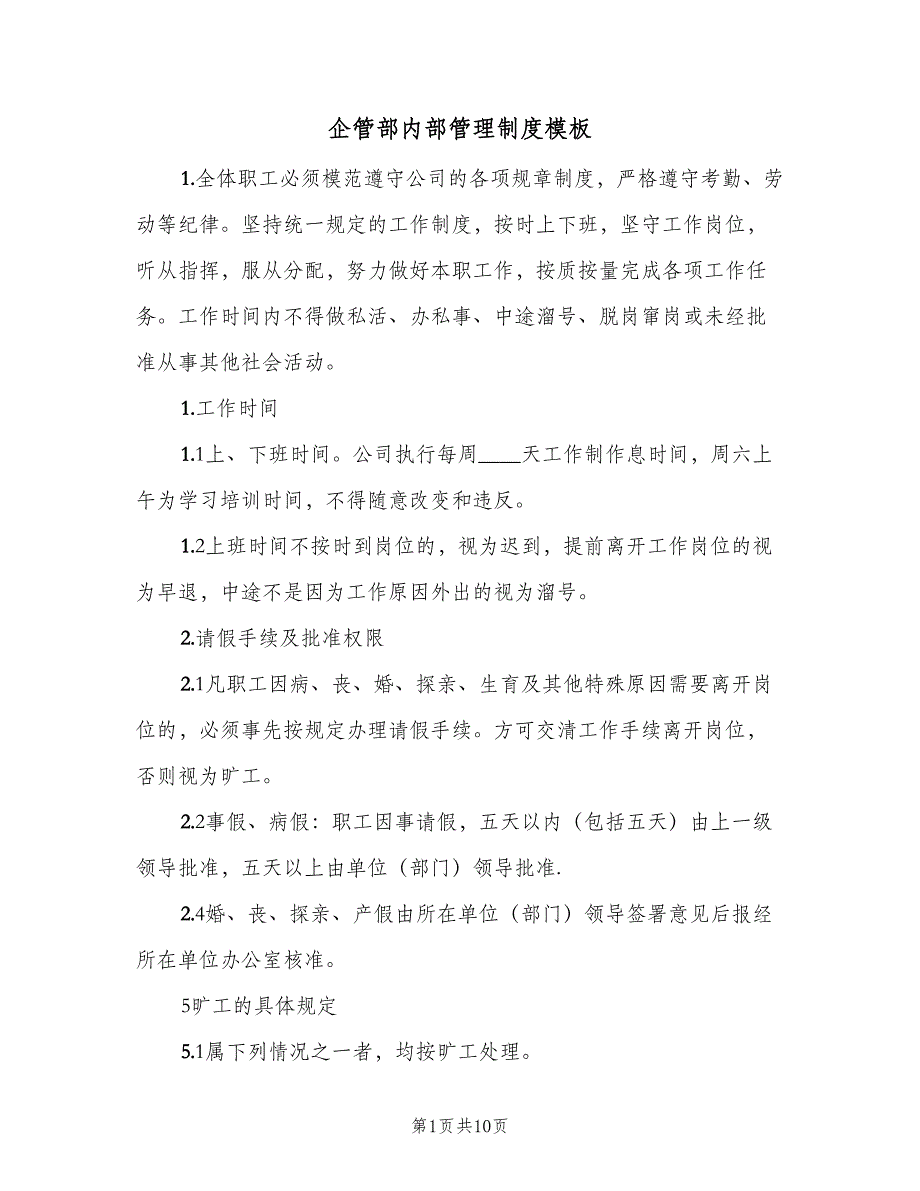 企管部内部管理制度模板
1.全体职工必须模范遵守公司的各项规章制度，严格遵守考勤、劳
动等纪律。坚持统一规定的工作制度，按时上下班，坚守工作岗位，
听从指挥，服从分配，努力做好本职工作，按质按量完成各项工作任
务。工作时间内不得做私活、办私事、中途溜号、脱岗窜岗或未经批
准从事其他社会活动。
1.工作时间
1.1上、下班时间。公司执行每周____天工作制作息时间，周六上
午为学习培训时间，不得随意改变和违反。
1.2上班时间不按时到岗位的，视为迟到，提前离开工作岗位的视
为早退，中途不是因为工作原因外出的视为溜号。
2.请假手续及批准权限
2.1凡职工因病、丧、婚、探亲、生育及其他特殊原因需要离开岗
位的，必须事先按规定办理请假手续。方可交清工作手续离开岗位，
否则视为旷工。
2.2事假、病假：职工因事请假，五天以内（包括五天）由上一级
领导批准，五天以上由单位（部门）领导批准.
2.4婚、丧、探亲、产假由所在单位（部门）领导签署意见后报经
所在单位办公室核准。
5旷工的具体规定
5.1属下列情况之一者，均按旷工处理。
第1页共10页